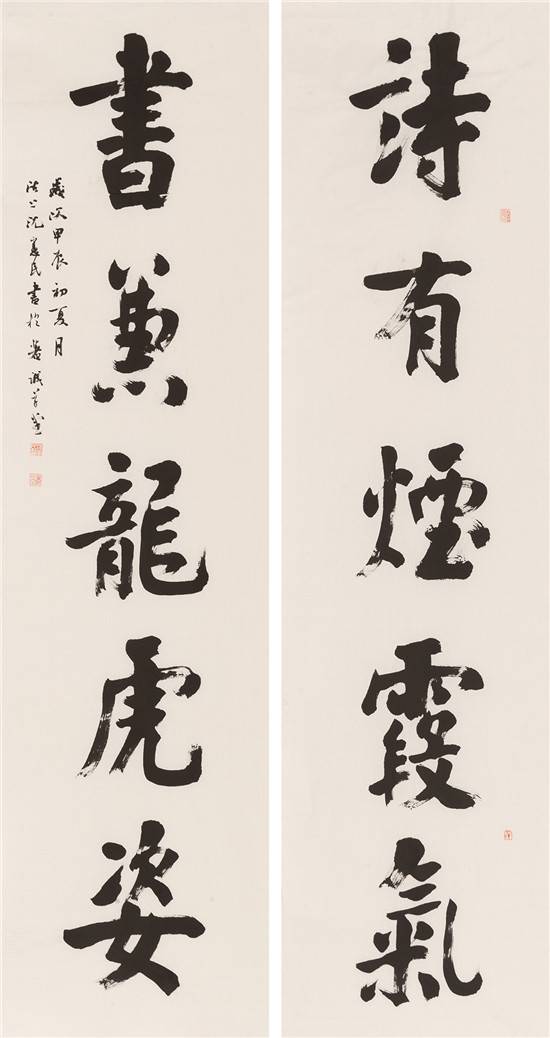 詩有煙霞氣
書兼龍虎姿
歲次甲辰初夏月
沈
民書於